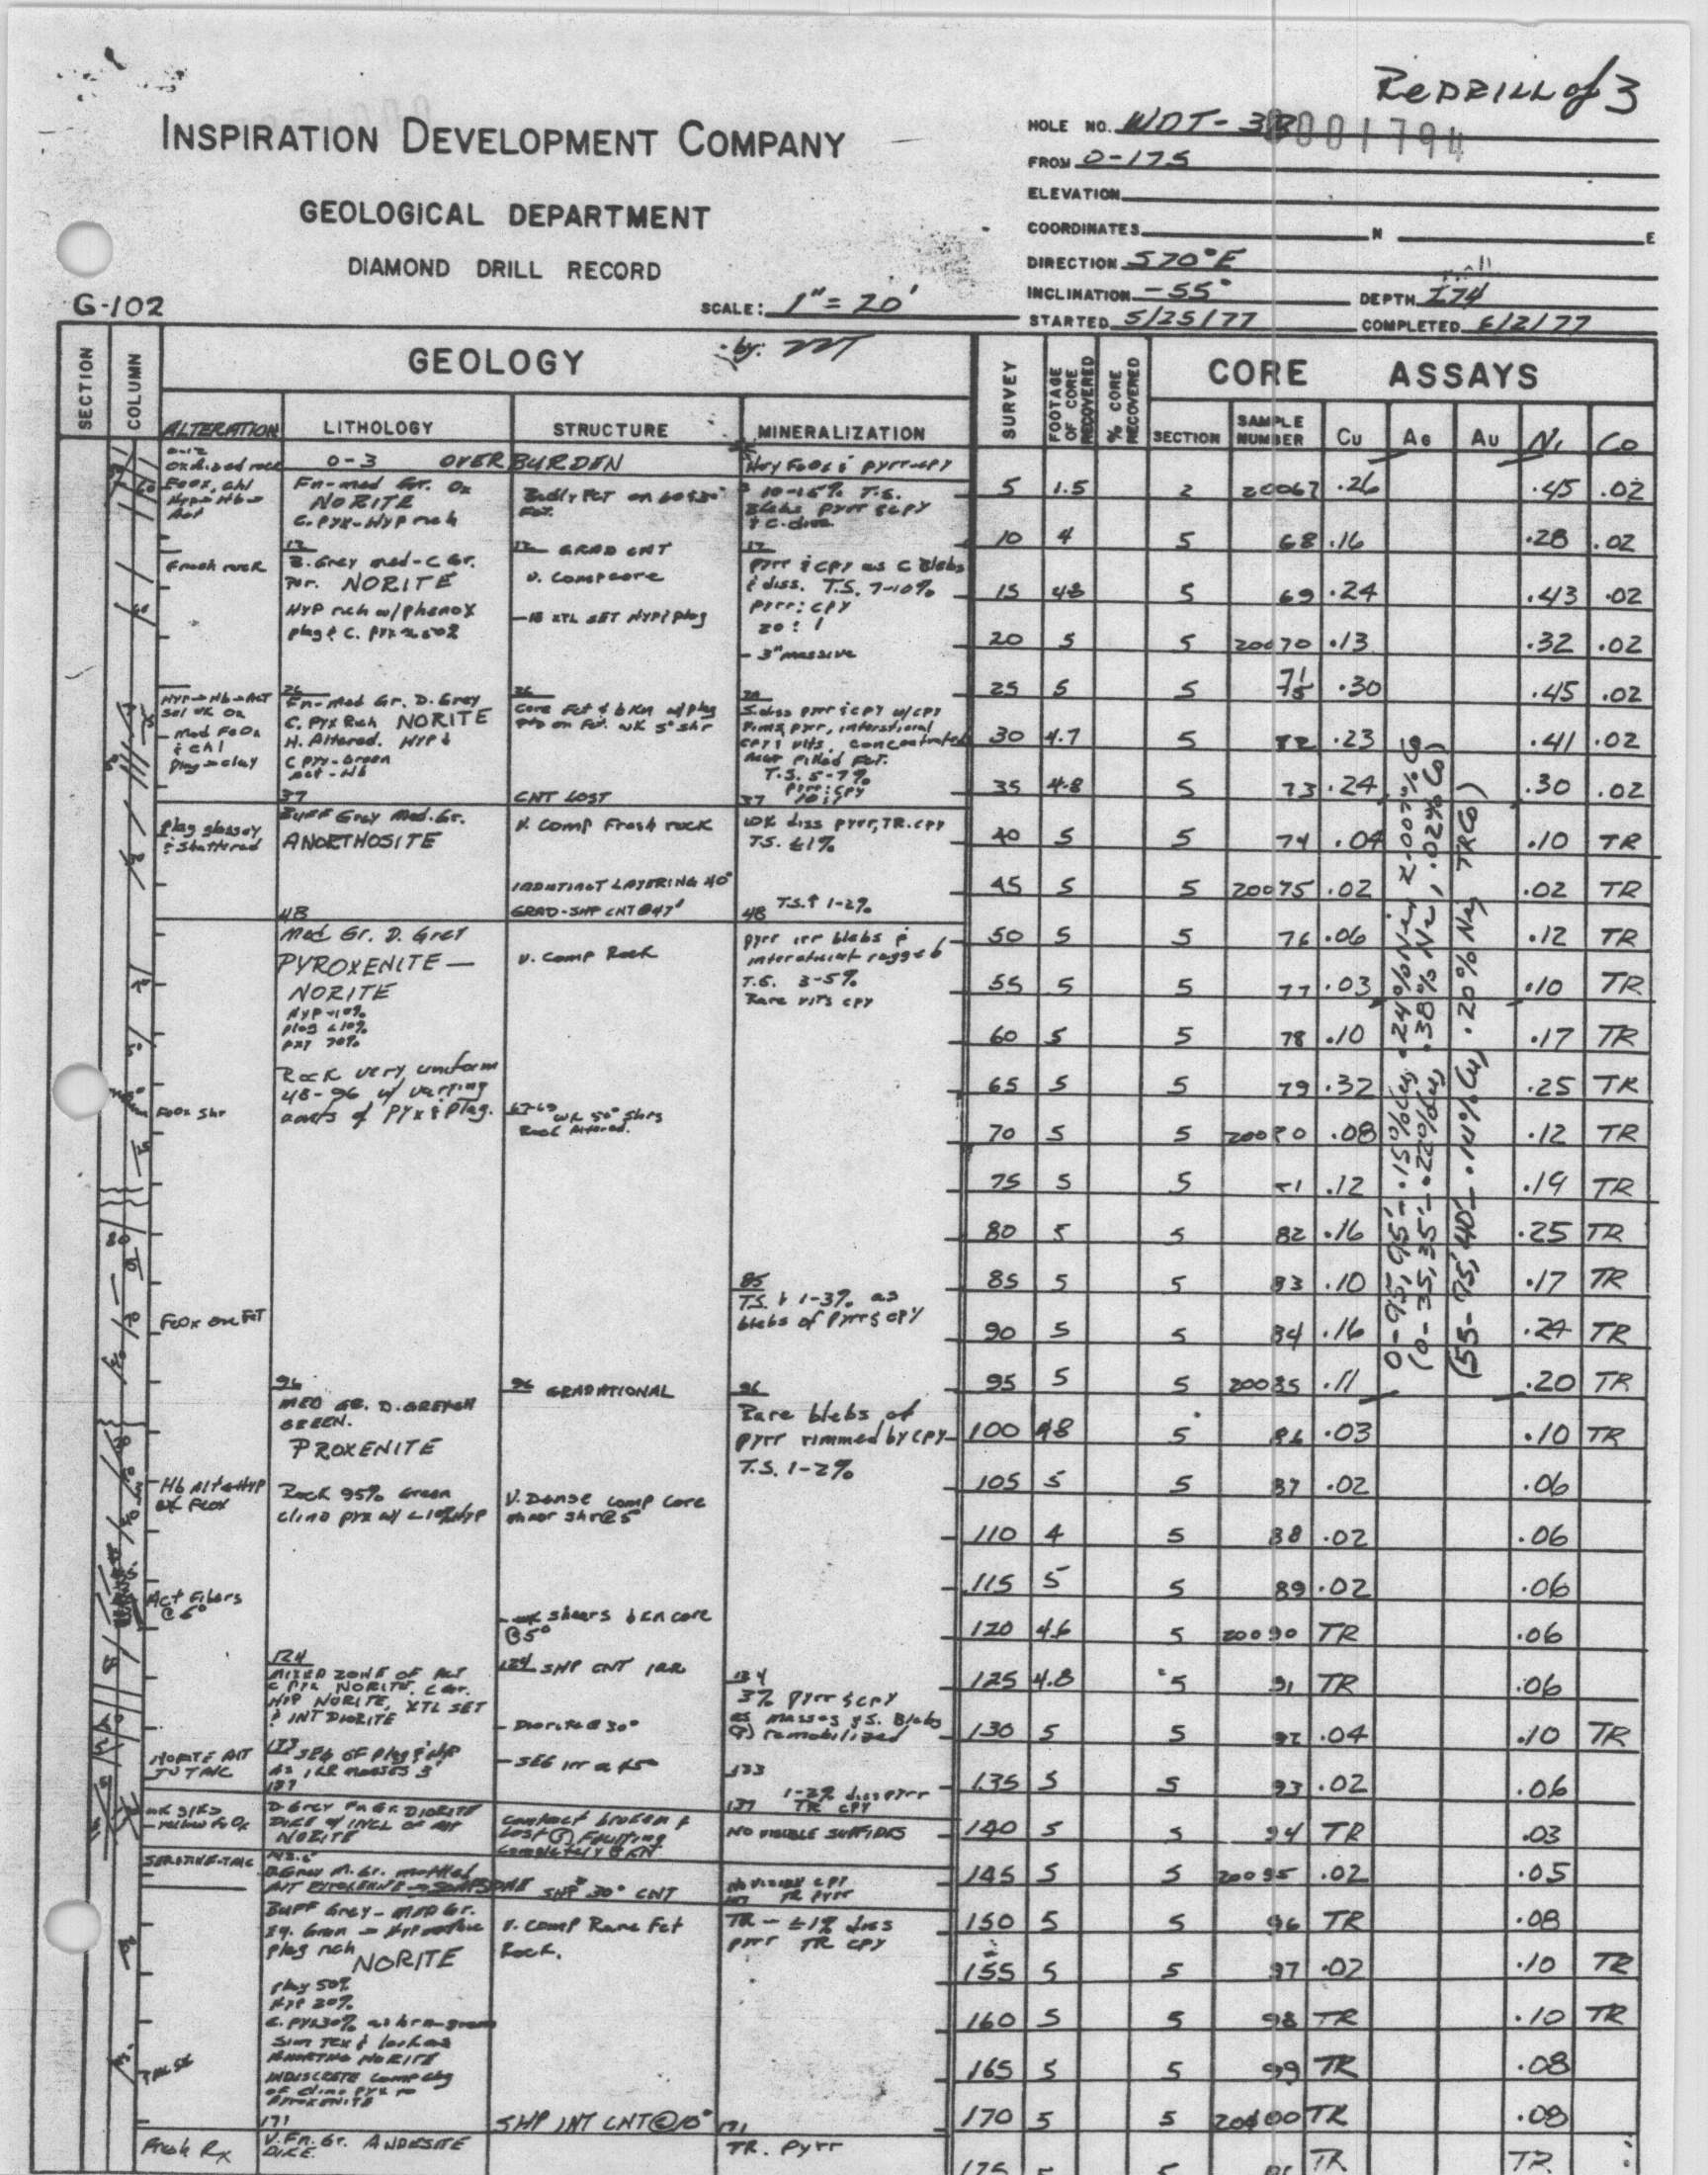 ReDRILL of 3
INSPIRATION DEVELOPMENT COMPANY
GEOLOGICAL DEPARTMENT
DIAMOND DRILL RECORD
G-102
SCALE: 1"= 20'
HOLE NO. WDT-3
0001794
FROM 0-175
ELEVATION
COORDINATES N E
DIRECTION S70°E
INCLINATION -55° DEPTH 174
STARTED 5/25/77 COMPLETED 6/2/77
SECTION COLUMN GEOLOGY by: SURVEY FOOTAGE OF CORE RECOVERED % CORE RECOVERED CORE ASSAYS
ALTERATION LITHOLOGY STRUCTURE MINERALIZATION SECTION SAMPLE NUMBER Cu AG AU Ni Co
0-12
Oxidized rock
FeOx, chl
Hyp→Hb→
Act
Fresh rock
Hyp→Hb→Act
- Mod FeOx
& chl
Plag→clay
Plag glassy
& shattered
FeOx shr
FeOx on Fct
Hb Alt→Hyp
wk FeOx
Act Fibers
@ 5°
Norite Alt
to talc
- yellow FeOx
Fresh Rx
0-3 OVERBURDEN
Fn-med Gr. Ox
NORITE
C. Pyx-Hyp rich
12
D. Grey med-C Gr.
Por. NORITE
Hyp rich w/phenox
plag & C. Pyx
26
Fn-Med Gr. D. Grey
C. Pyx Rich NORITE
H. Altered. Hyp &
C Pyx-Green
Act-Hb
37
Buff Grey Med. Gr.
ANORTHOSITE
48
Med Gr. D. Grey
PYROXENITE —
NORITE
Plag <10%
Rock very uniform
48-96 w/ varying
amts of Pyx & Plag.
96
MED GR. D. GREYGH
GREEN.
PROXENITE
Rock 95% Green
clino pyx w/ <10% Hyp
124
MIXED ZONE OF ALT
C PYX NORITE, C Gr.
HYP NORITE, XTL SET
& INT DIORITE
133 SEG OF Plag & Hyp
as irr masses 3"
137
D Grey Fn Gr. DIORITE
DIKE w/ INCL OF Alt
NORITE
Buff Grey-MED Gr.
plag rich NORITE
Plag 50%
Hyp 20%
171
V. Fn. Gr. ANDESITE
DIKE
Badly Fct on
12 GRAD CNT
V. Comp core
-18 XTL SET Hyp & plag
26
CNT LOST
V. Comp Fresh rock
INDISTINCT LAYERING 40°
GRAD-SHP CNT @ 47'
V. Comp Rock
67-69 wk 50° shrs
Rock Altered.
96 GRADATIONAL
V. Dense comp core
minor shr @ 5°
- wk shears & kn core
@ 5°
124 SHP CNT IRR
- Diorite @ 30°
contact broken &
SHP 30° CNT
V. Comp Rare Fct
Rock.
SHP INT CNT @ 10°
Hvy FeOx & pyrr-cpy
10-15% T.S.
Blebs pyrr & cpy
& C. diss
12
pyrr & cpy as C Blebs
& diss. T.S. 7-10%
pyrr : cpy
20 : 1
- 3" massive
T.S. 5-7%
pyrr:cpy
37
wk diss pyrr, TR. cpy
T.S. ≤1%
48 T.S.↑ 1-2%
pyrr irr blebs &
T.S. 3-5%
Rare vlts cpy
85
T.S. ↓ 1-3% as
blebs of pyrr & cpy
96
Rare blebs of
pyrr rimmed by cpy
T.S. 1-2%
124
3% pyrr & cpy
as masses & S. Blebs
(?) remobilized
133
1-2% diss pyrr
137 TR CPY
NO VISIBLE SULFIDES
TR - ≤1% diss
pyrr TR CPY
171
TR. pyrr
5 1.5 2 20067 .26 .45 .02
10 4 5 68 .16 .28 .02
15 4.8 5 69 .24 .43 .02
20 5 5 20070 .13 .32 .02
25 5 5 71 .30 .45 .02
30 4.7 5 72 .23 .41 .02
35 4.8 5 73 .24 .30 .02
40 5 5 74 .04 .10 TR
45 5 5 20075 .02 .02 TR
50 5 5 76 .06 .12 TR
55 5 5 77 .03 .10 TR
60 5 5 78 .10 .17 TR
65 5 5 79 .32 .25 TR
70 5 5 20080 .08 .12 TR
75 5 5 81 .12 .19 TR
80 5 5 82 .16 .25 TR
85 5 5 83 .10 .17 TR
90 5 5 84 .16 .24 TR
95 5 5 20085 .11 .20 TR
100 4.8 5 86 .03 .10 TR
105 5 5 87 .02 .06
110 4 5 88 .02 .06
115 5 5 89 .02 .06
120 4.6 5 20090 TR .06
125 4.8 5 91 TR .06
130 5 5 92 .04 .10 TR
135 5 5 93 .02 .06
140 5 5 94 TR .03
145 5 5 20095 .02 .05
150 5 5 96 TR .08
155 5 5 97 .02 .10 TR
160 5 5 98 TR .10 TR
165 5 5 99 TR .08
170 5 5 20100 TR .08
175 5 5 TR TR
0-95, 95'- .15% Cu, .24% Ni, <.007% Co
(0-35, 35'- .22% Cu, .38% Ni, .02% Co)
(55-95, 40'- .14% Cu, .20% Ni, TR Co)